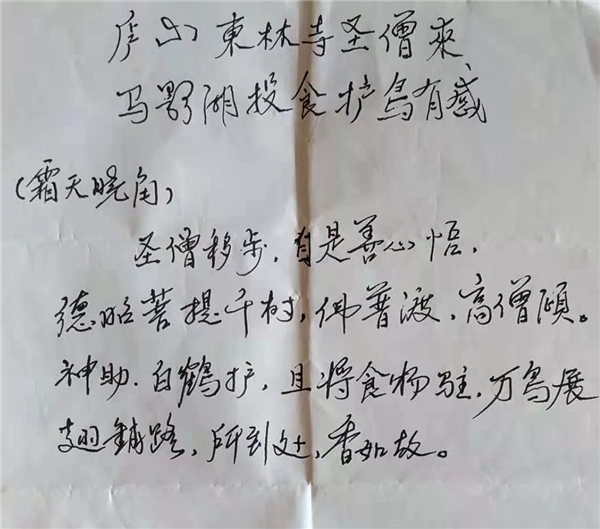 庐山東林寺圣僧來
马影湖投食护鸟有感
(霜天晓角)
圣僧移步,自是善心悟,
德昭菩提千树,佛普渡,高僧顾。
神助.白鶴护,且将食物駐,万鸟展
翅鋪路,所到处,香如故。